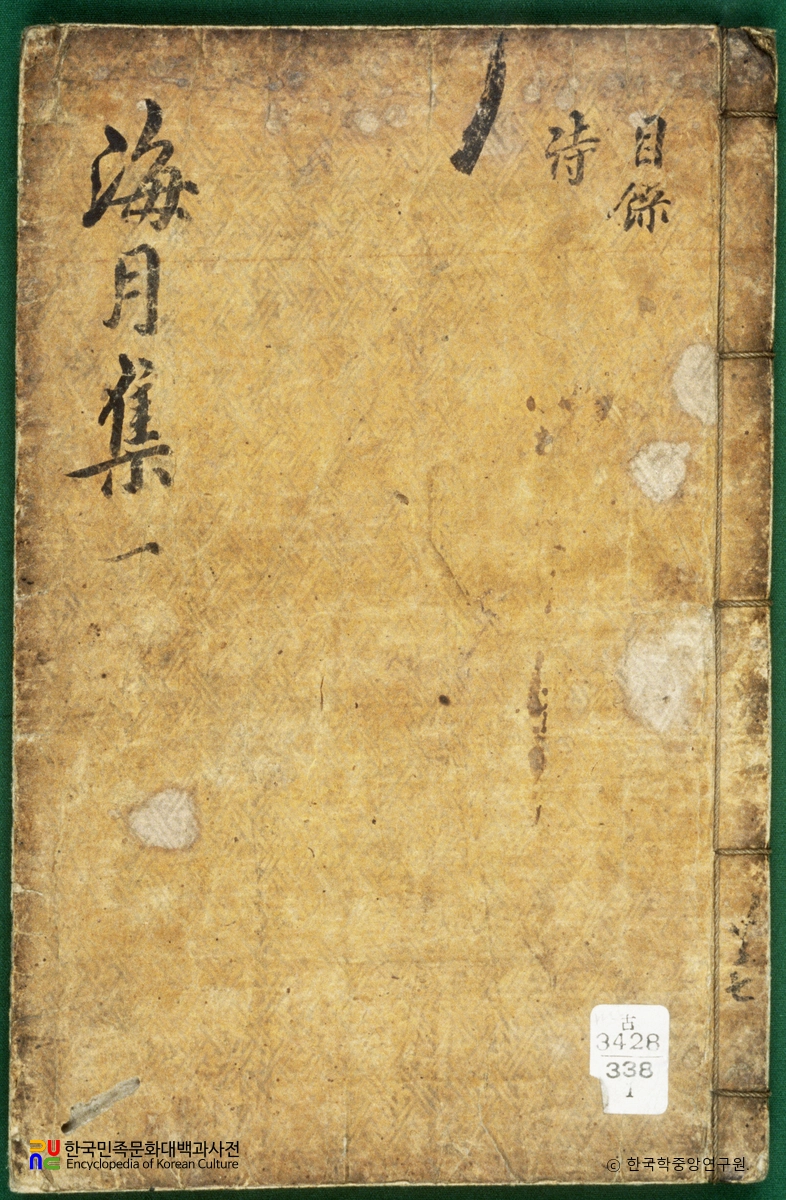 目錄
詩
海月集 一
共七
古
3428
338
1
한국민족문화대백과사전
Encyclopedia of Korean Culture
© 한국학중앙연구원